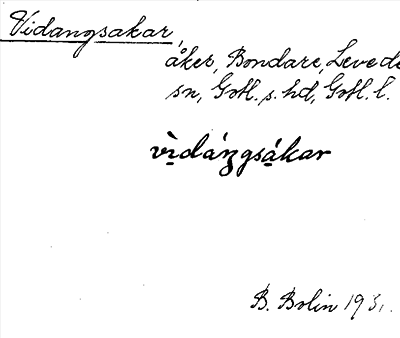 Vidangsakar,
åker, Bondarve, Levede
sn, Gotl. s. hd, Gotl. l.
vìdáŋgsákar
B. Bolin 1931.